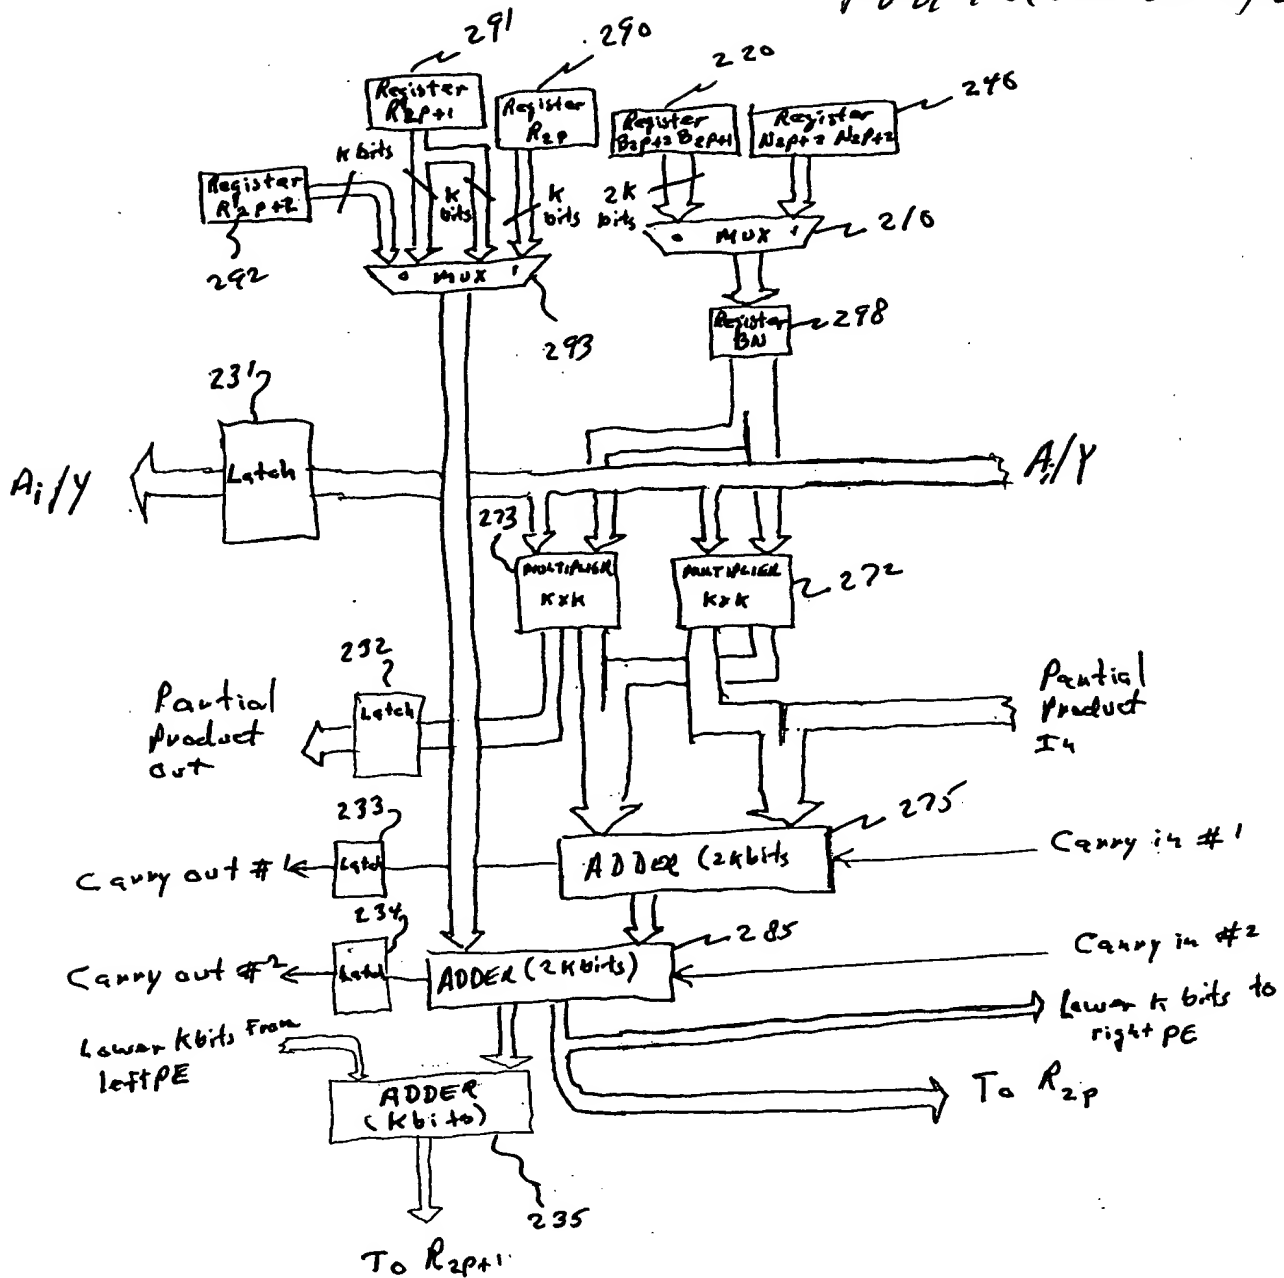 291
290
220
246
Register
R2p+1
Register
R2p
Register
B2p+2 B2p+1
Register
N2p+2 N2p+2
K bits
Register
R2p+2
K
bits
K
bits
2K
bits
0 MUX 1
210
292
0 MUX 1
293
Register
BN
298
231
Ai/Y
Latch
Ai/Y
273
MULTIPLIER
KxK
MULTIPLIER
KxK
272
232
Partial
Product
Out
Latch
Partial
Product
In
233
275
Carry out #1
Latch
ADDER (2Kbits
Carry in #1
234
285
Carry out #2
Latch
ADDER (2Kbits)
Carry in #2
Lower Kbits From
left PE
Lower K bits to
right PE
ADDER
(Kbits)
To R2p
235
To R2p+1